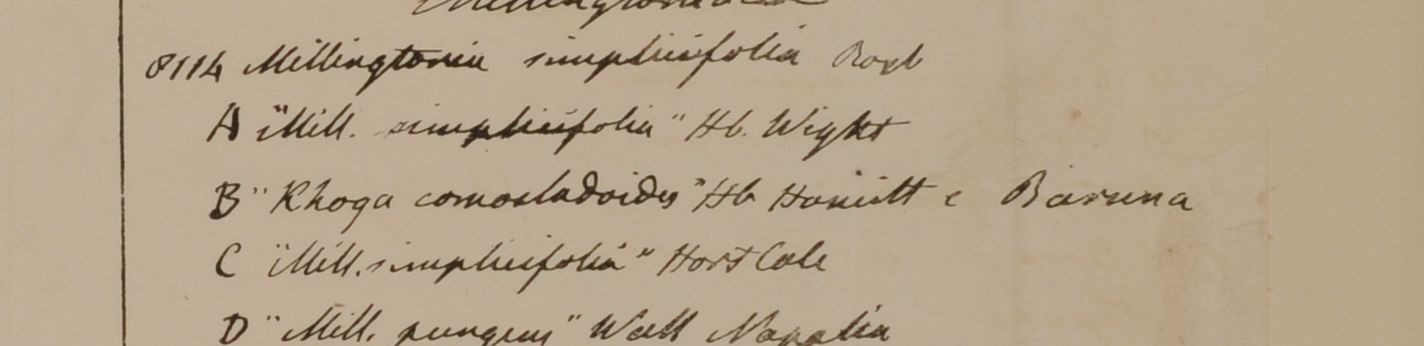 8114 Millingtonia simplicifolia Roxb
A "Mill. simplicifolia" Hb. Wight
B "Rhoga comocladoides" Hb Hamilt e
C "Mill. simplicifolia" Hort Calc
D "Mill. pungens" Wall Napalia